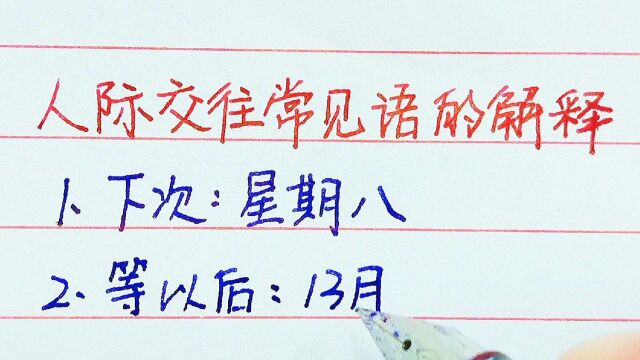 人际交往常见语的解释
1、下次：星期八
2、等以后：13月